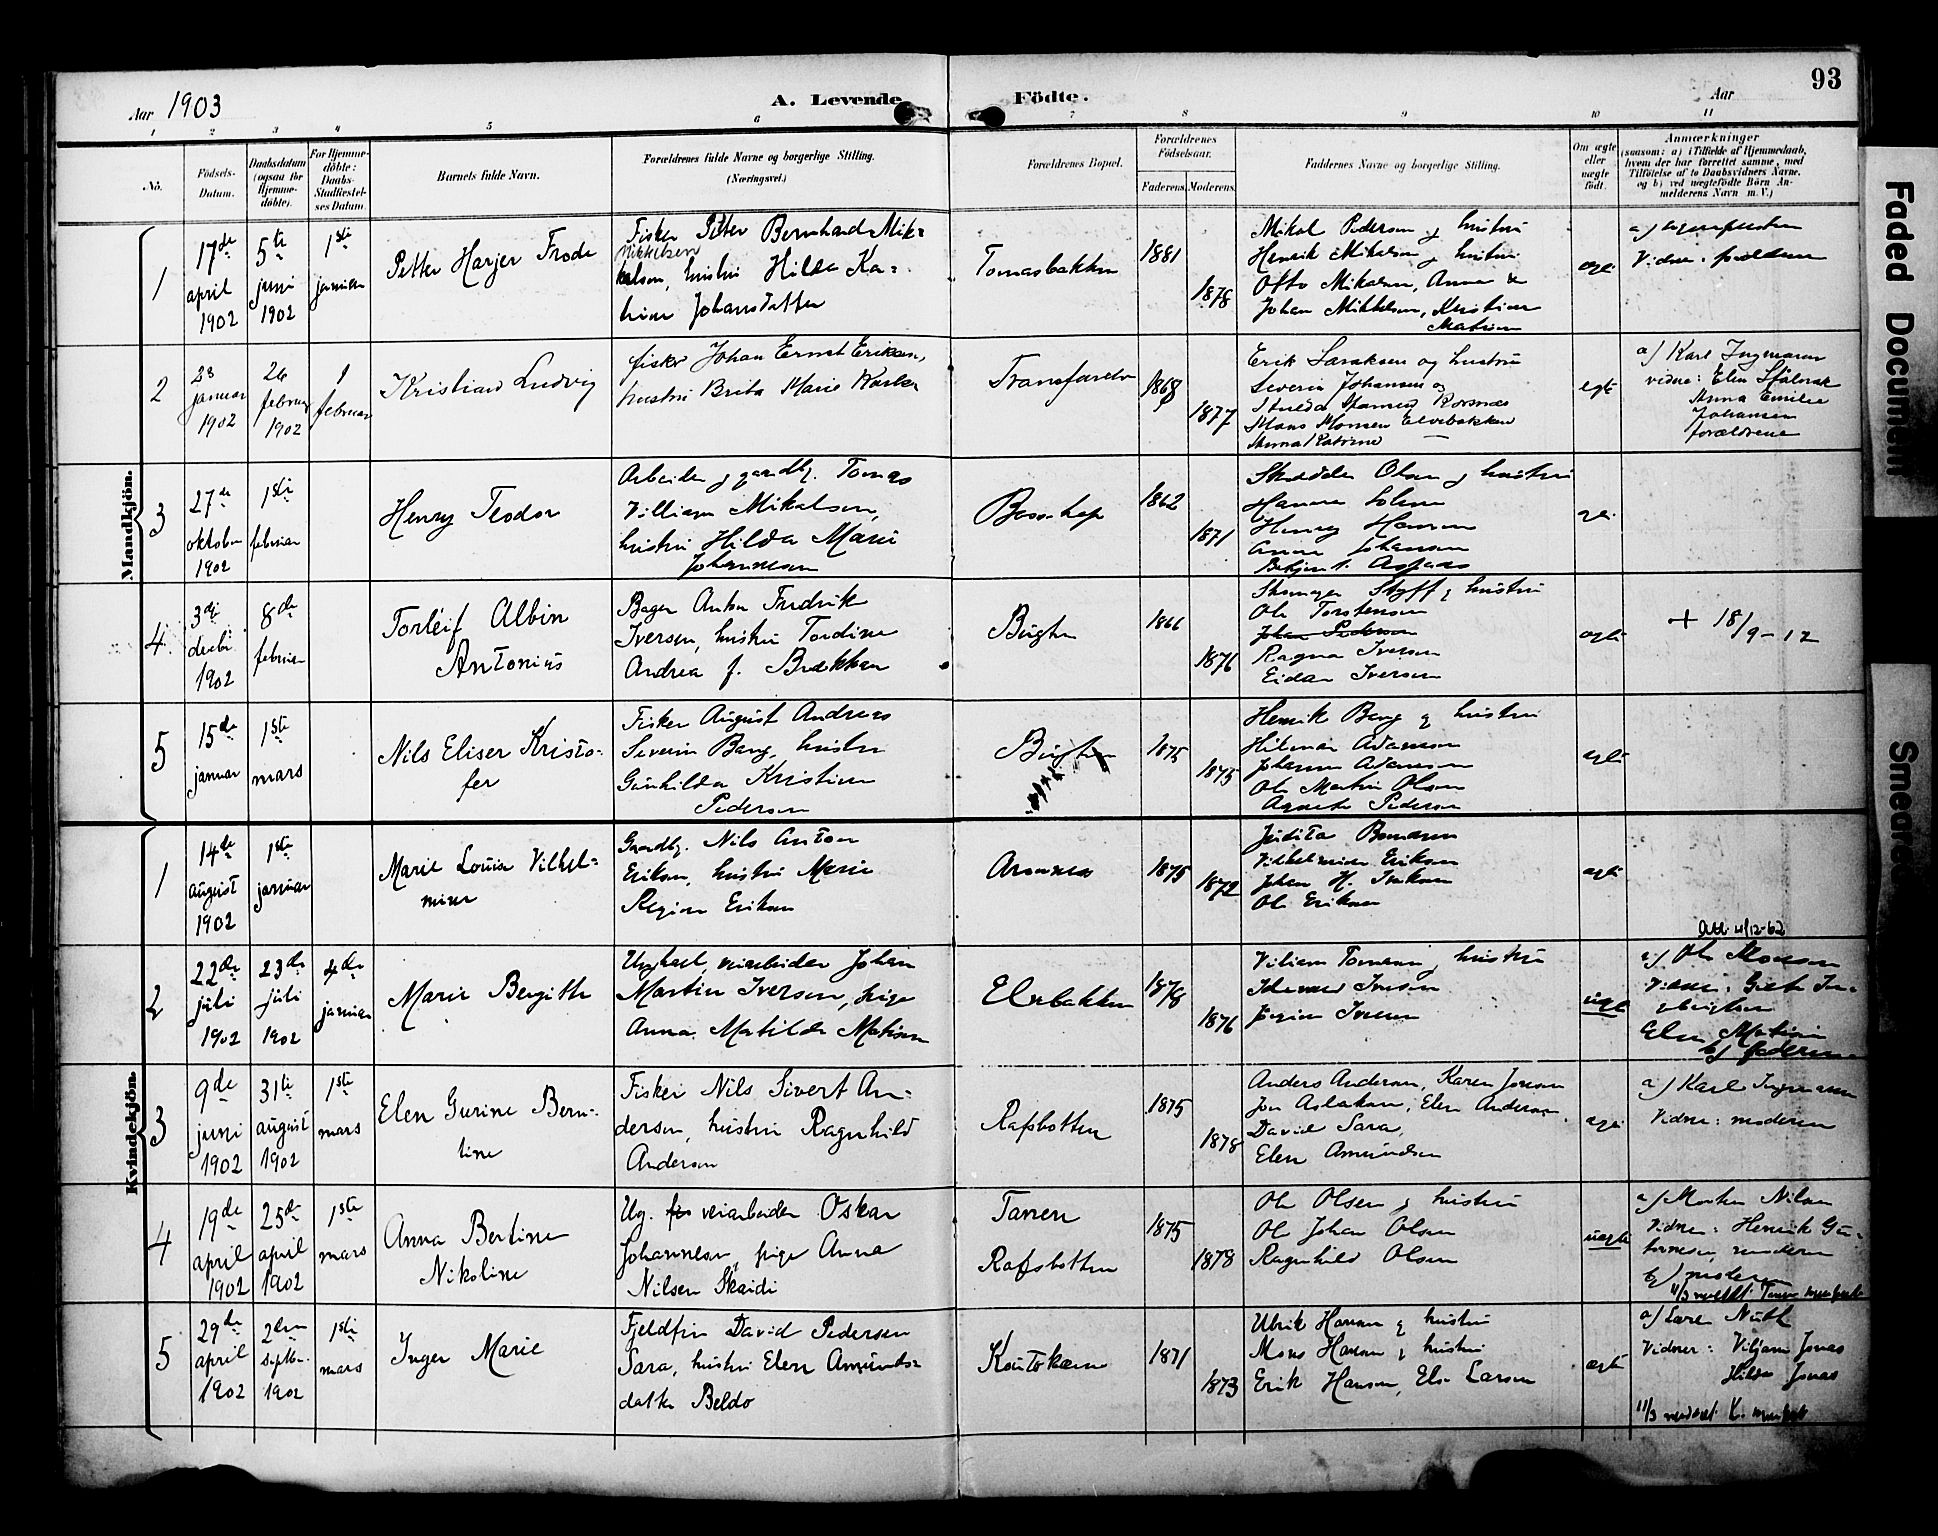 93
Aar 1903
A. Levende
Födte.
Aar
1 2 3 4 5 6 7 8 9 10 11
No.
Födsels-
Datum.
Daabsdatum
(ogsaa for
Hjemme-
döbte).
For Hjemme-
döbte:
Daabs-
Stadfæstel-
ses Datum.
Barnets fulde Navn.
Forældrenes fulde Navne og borgerlige Stilling.
(Næringsvei.)
Forældrenes Bopæl.
Forældrenes
Födselsaar.
Faderens.
Moderens.
Faddernes Navne og borgerlige Stilling.
Om ægte
eller
uægte
født.
Anmærkninger
(saasom: a) i Tilfælde af Hjemmedaab,
hvem der har forrettet samme, med
Tilföielse af to Daabsvidners Navne,
og b) ved uægtefödte Börn An-
melderens Navn m. V.)
Mandkjön.
1
17de
april
1902
5te
juni
1902
1ste
januar
Petter Harjer Frode
Fisker Petter Bernhard Mik-
Mikkelsen
kelsen, hustru Hilda Ka-
trine Johansdatter
Tomasbakken
1881
1878
Mikal Pedersen og hustru
Henrik Mikalsen og hustru
Otto Mikalsen, Anna
Johan Mikkelsen, Kristian
Mathisen
ægte
a)
Vidne: forældrene
2
23
januar
1902
26
februar
1902
1
februar
Kristian Ludvig
fisker Johan Ernst Eriksen,
hustru Brita Marie Karls
Transfarelv
1868
1877
Erik Isaksen og hustru
Severin Johansen og
Korsnæs
Mans Monsen Elvebakken
Anna Katrine —
egte
a) Karl Ingmarsen
vidne: Elen
Anna Emilie
Johansen
forældrene
3
27de
oktober
1902
1ste
februar
Henry Teodor
Arbeider og gaardbg. Tomas
Villiam Mikalsen,
hustru Hilda Marie
Johannesen
Bossekop
1862
1871
Olsen og hustru
Hanna
Henry Hansen
Anna Johansen
4
3die
decbr.
1902
8de
februar
Torleif Albin
Antonius
Bager Anton Fredrik
Iversen, hustru Tordine
Andrea f. Brækken
Bugten
1866
1876
og hustru
Ole Torstensen
Johan Pedersen
Ragna Iversen
Eidar Iversen
ægte
+ 18/9-12
5
15de
januar
1ste
mars
Nils Eliser Kristo-
fer
Fisker August Andreas
Severin Bang, hustru
Gunhilda Kristine
Pedersen
Bugten
1875
1875
Henrik Bang og hustru
Hilmar Adamsen
Johanna Adamsen
Ole Martin Olsen
Pedersen
ægte
Kvindekjön.
1
14de
august
1902
1ste
januar
Marie Louise Vilhel-
mine
Gaardbg. Nils Anton
Eriksen, hustru Marie
Regine Eriksen
Aronnes
1875
1872
Judita
Vilhelmine Eriksen
Johan H. Isaksen
Ole Eriksen
ægte
2
22de
juli
1902
23de
juli
1902
4de
januar
Marie Bergitte
Ungkarl, veiarbeider Johan
Martin Iversen, pige
Anna Matilde Mathisen
Elvebakken
1878
1876
Viliam Tomassen og hustru
Iversen
Jørgine Iversen
uægte
a) Ole Monsen
Vidne:
Elen Mathisen
b) faderen
3
9de
juni
1902
31te
august
1902
1ste
mars
Elen Gurine Bern-
tine
Fisker Nils Sivert An-
dersen, hustru Ragnhild
Andersen
Rafsbotten
1875
1878
Anders Andersen, Karen Jonsen
Jon Aslaksen, Elen Andersen
David Sara,
Elen Amundsen
ægte
a) Karl Ingmarsen
Vidne: moderen
4
19de
april
1902
25de
april
1902
1ste
mars
Anna Bertine
Nikoline
Ug. veiarbeider Oskar
Johannesen, pige Anna
Nilsen Skaidi
Tanen
Rafsbotten
1875
1878
Ole Olsen og hustru
Ole Johan Olsen
Ragnhild Olsen
uægte
a) Morten Nilsen
Vidne: Henrik Gu-
moderen
b) moderen
11/3 meddelt Tanen
5
29de
april
1902
2den
septbr.
1902
1ste
mars
Inger Marie
Fjeldfin David Pedersen
Sara, hustru Elen Amunds-
datter Beldo
Koutokæino
1871
1873
Ulrik Hansen og hustru
Mons Hansen og hustru
Erik Hansen, Else Larsen
ægte
a) Lars
Vidner: Viljam Jonas
Hilda Jonas
11/3 meddelt K.
Faded Document
Smeared